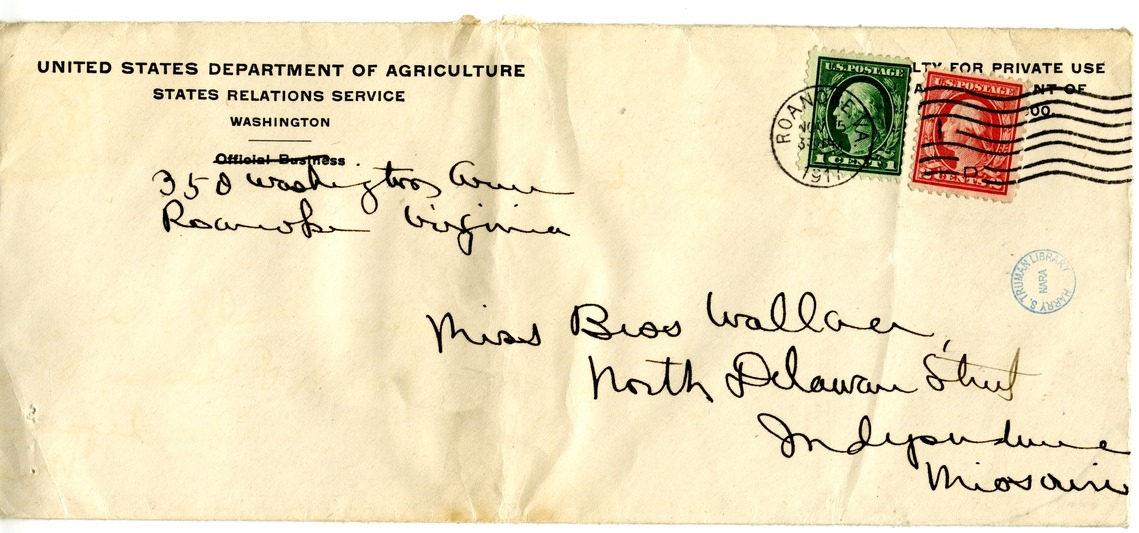 UNITED STATES DEPARTMENT OF AGRICULTURE
STATES RELATIONS SERVICE
WASHINGTON
Official Business
358 Washington Avenue
Roanoke Virginia
LTY FOR PRIVATE USE
NT OF
00.
U.S.POSTAGE
1 CENT 1
U.S.POSTAGE
CENTS
ROANOKE, VA.
1917
HARRY S. TRUMAN LIBRARY
NARA
Miss Bess Wallace,
North Delaware Street
Independence
Missouri